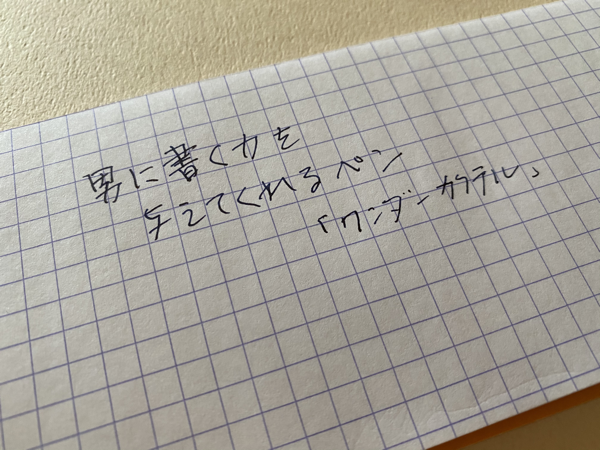 男に書く力を
与えてくれるペン
「ワンダーカクテル」